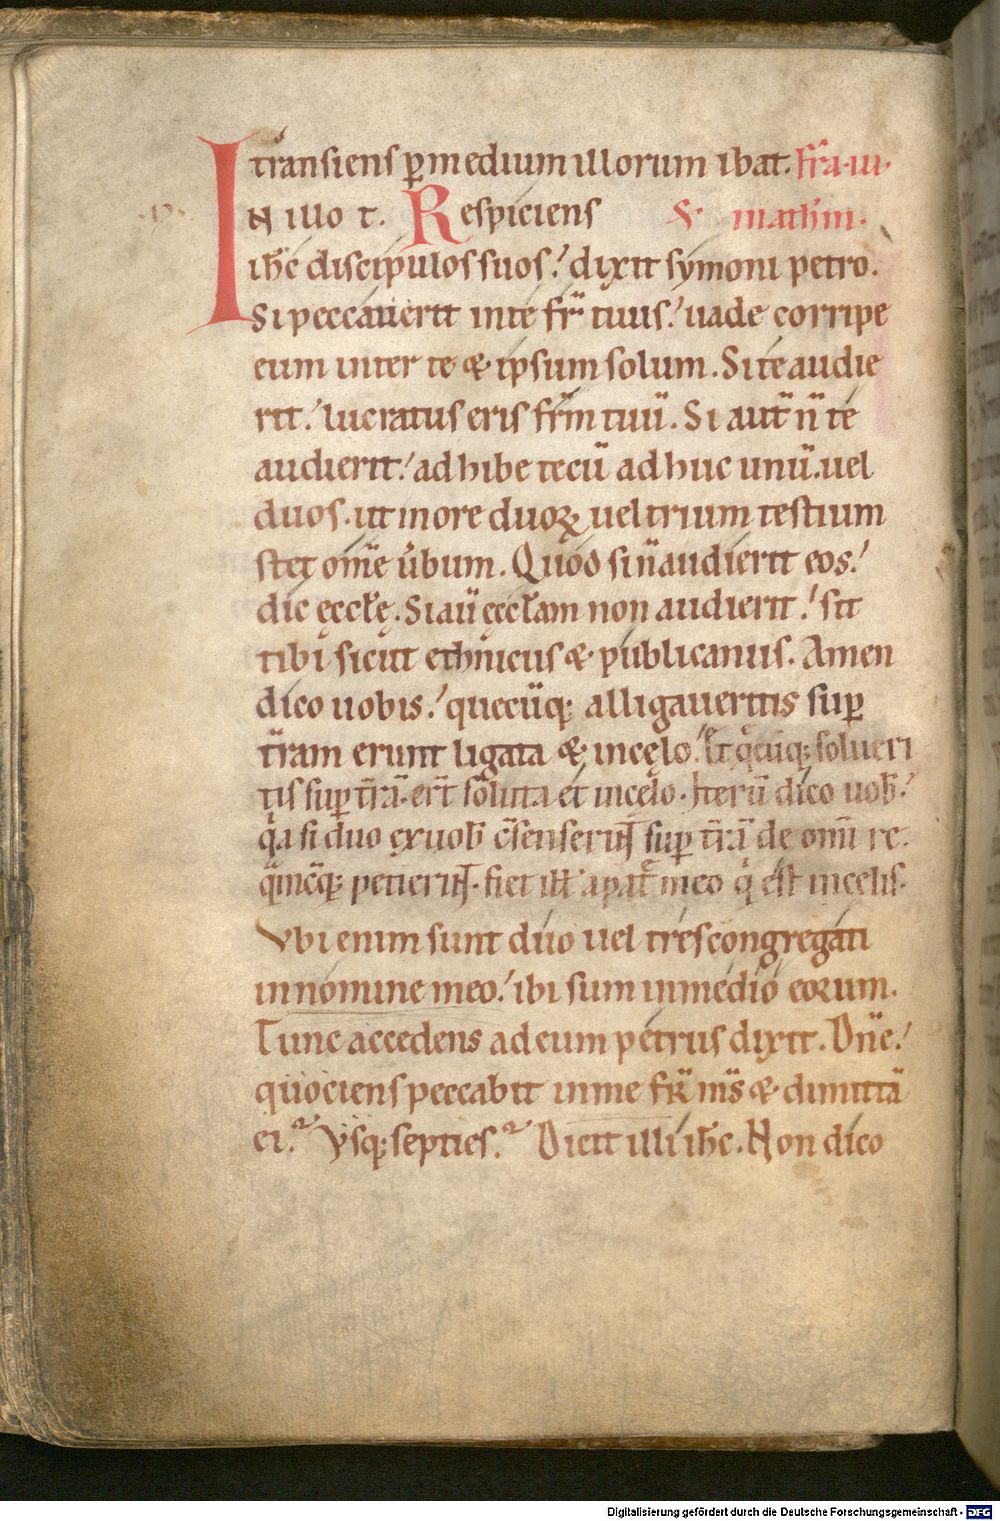 transiens ꝑ medium illorum ibat. fr̄a·iii·
IN illo t̄. Respiciens S̄ math̄m·
ih̄c discipulos suos.' dixit symoni petro.
Si peccauerit in te fr̄ tuus.' uade corripe
eum inter te & ipsum solum. Si te audie
rit.' lucratus eris fr̄m tuū. Si aut̄ n̄ te
audierit.' adhibe tecū adhuc unū. uel
duos. ut in ore duoꝝ uel trium testium
stet om̄e ūbum. Quod si n̄ audierit eos.'
dic ęccłę. Si aū ęccłam non audierit.' sit
tibi sicut ethnicus & publicanus. Amen
dico uobis.' quecūq; alligaueritis suꝑ
t̄ram erunt ligata & in cęlo.' Et q̄cūq; solueri
tis suꝑ t̄rā. er̄t soluta et in cęlo. Iterū dico uob̄.'
q̇a si duo ex uob̄ c̄senserin̄t suꝑ t̄rā de om̄i re.
q̄mcūq; petierin̄t. fiet ill̄ a pat̄ meo q̇ est in celis.
Vbi enim sunt duo uel tres congregati
in nomine meo.' ibi sum in medio eorum.
Tunc accedens ad eum petrus dixit. Dn̄e.'
quociens peccabit in me fr̄ m̄s & dimittā
ei.? Vsq; septies.? Dicit illi ih̄c. Non dico
Digitalisierung gefördert durch die Deutsche Forschungsgemeinschaft - DFG